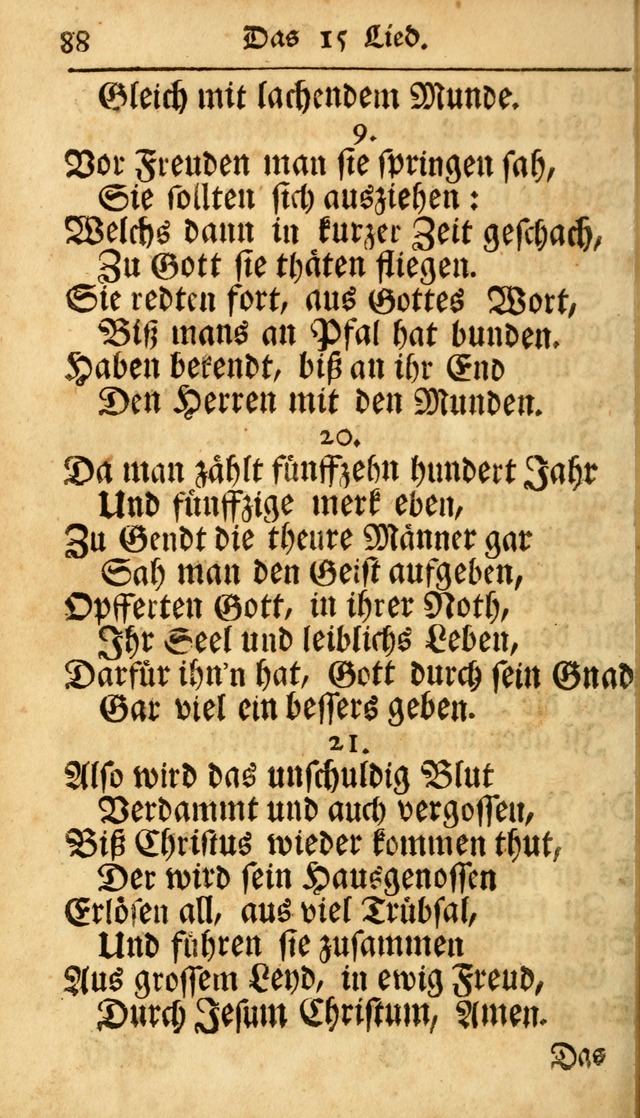 88 Das 15 Lied.
Gleich mit lachendem Munde.
9.
Vor Freuden man sie springen sah,
Sie sollten sich ausziehen:
Welchs dann in kurzer Zeit geschach,
Zu Gott sie thäten fliegen.
Sie redten fort, aus Gottes Wort,
Biß mans an Pfal hat bunden.
Haben bekendt, biß an ihr End
Den Herren mit den Munden.
20.
Da man zählt fünffzehn hundert Jahr
Und fünffzige merk eben,
Zu Gendt die theure Männer gar
Sah man den Geist aufgeben,
Opfferten Gott, in ihrer Noth,
Ihr Seel und leiblichs Leben,
Darfür ihn'n hat, Gott durch sein Gnad
Gar viel ein bessers geben.
21.
Also wird das unschuldig Blut
Verdammt und auch vergossen,
Biß Christus wieder kommen thut,
Der wird sein Hausgenossen
Erlösen all, aus viel Trübsal,
Und führen sie zusammen
Aus grossem Leyd, in ewig Freud,
Durch Jesum Christum, Amen.
Das